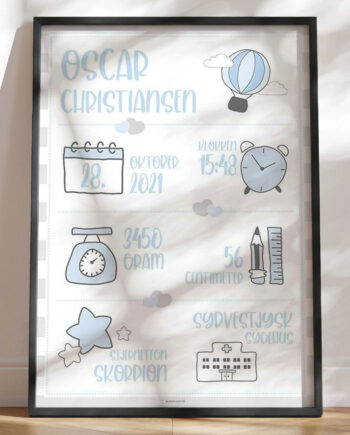 OSCAR
CHRISTIANSEN
28.
OKTOBER
2021
KLOKKEN
15:48
3450
GRAM
56
CENTIMETER
STJERNETEGN
SKORPION
SYDVESTJYSK
SYGEHUS